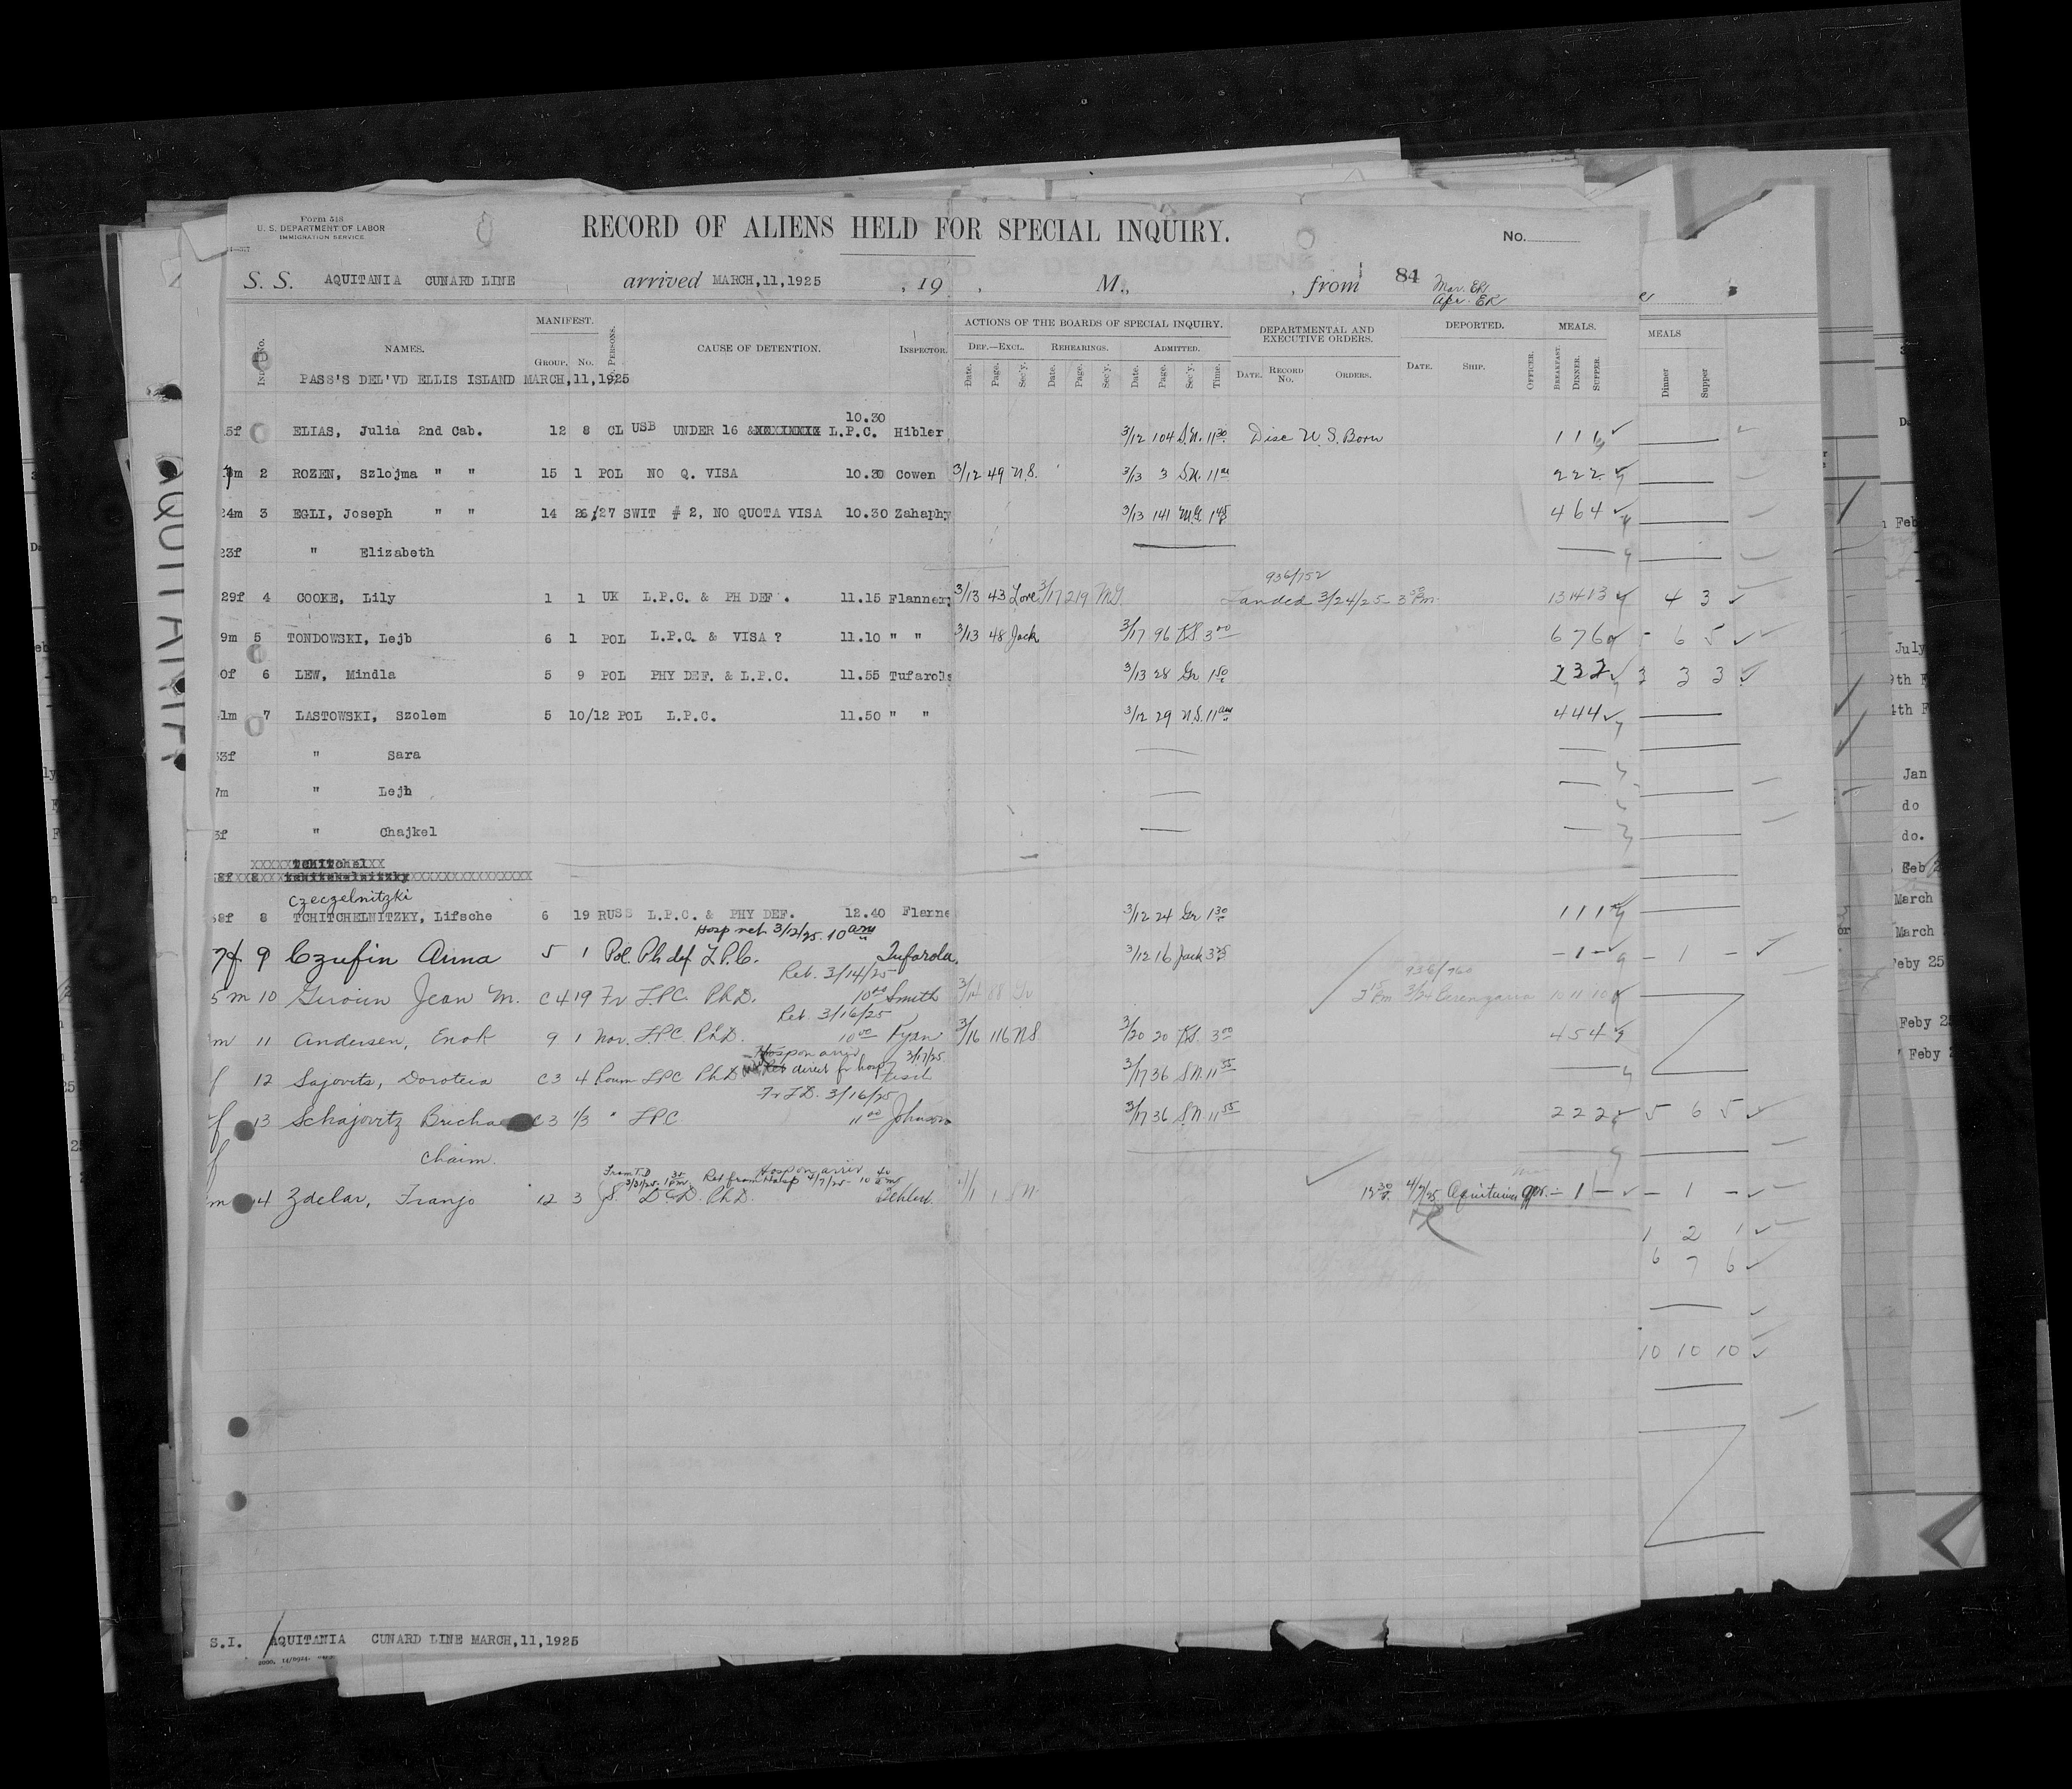 Form 518
U. S. DEPARTMENT OF LABOR
IMMIGRATION SERVICE
RECORD OF ALIENS HELD FOR SPECIAL INQUIRY.
No.
S. S. AQUITANIA CUNARD LINE arrived MARCH,11,1925 , 19 , M., , from 84 Mar. ER
Apr. ER
MANIFEST. PERSONS. ACTIONS OF THE BOARDS OF SPECIAL INQUIRY. DEPARTMENTAL AND EXECUTIVE ORDERS. DEPORTED. MEALS. MEALS
NAMES. GROUP. No. CAUSE OF DETENTION. INSPECTOR. DEF.—EXCL. REHEARINGS. ADMITTED.
Date. Page. Sec'y. Date. Page. Sec'y. Date. Page. Sec'y. Time. DATE. RECORD No. ORDERS. DATE. SHIP. OFFICER. BREAKFAST. DINNER. SUPPER. Dinner Supper
PASS'S DEL'VD ELLIS ISLAND MARCH,11,1925
5f ELIAS, Julia 2nd Cab. 12 8 CL USB UNDER 16 & L.P.C. 10.30 Hibler 3/12 104 S.N. 11 30 Disc U. S. Born 1 1 1
m 2 ROZEN, Szlojma " " 15 1 POL NO Q. VISA 10.30 Cowen 3/12 49 N.S. 3/13 3 S.N. 11 am 2 2 2
24m 3 EGLI, Joseph " " 14 26/27 SWIT # 2, NO QUOTA VISA 10.30 Zahaphy 3/13 141 1 45 4 6 4
23f " Elizabeth
936/752
29f 4 COOKE, Lily 1 1 UK L.P.C. & PH DEF. 11.15 Flannery 3/13 43 Love 3/17 219 MG. Landed 3/24/25 - 3 Pm. 13 14 13 4 3
9m 5 TONDOWSKI, Lejb 6 1 POL L.P.C. & VISA ? 11.10 " " 3/13 48 Jack 3/17 96 KS 3 00 6 7 6 - 6 5
0f 6 LEW, Mindla 5 9 POL PHY DEF. & L.P.C. 11.55 Tufarola 3/13 28 Gr 1 50 2 3 2 3 3 3
1m 7 LASTOWSKI, Szolem 5 10/12 POL L.P.C. 11.50 " " 3/12 29 N.S. 11 am 4 4 4
33f " Sara
7m " Lejb
3f " Chajkel
8f 8
Czeczelnitzki
38f 8 TCHITCHELNITZKY, Lifsche 6 19 RUSS L.P.C. & PHY DEF. 12.40 Flanne 3/12 24 Gr 1 30 1 1 1
Hosp ret 3/12/25. 10 am
7f 9 Czufin Anna 5 1 Pol. Ph def L.P.C. Tufarola. 3/12 16 Jack 3 25 - 1 - - 1 -
Ret. 3/14/25
5m 10 Jean M. C4 19 Fr LPC. PhD. 10 00 Smith 3/14 88 Gr 936/760
2 15 Pm 3/24 Berengaria 10 11 10
Ret. 3/16/25
m 11 Andersen, Enok 9 1 Nor. LPC. PhD. 10 00 Ryan 3/16 116 NS 3/20 20 KS. 3 00 4 5 4
Hosp on arriv 3/17/25
f 12 Sajovits, Doroteia C3 4 Roum LPC PhD direct fr hosp 3/17 36 S.N. 11 55
Fr T.D. 3/16/25
f 13 Schajovitz Bricha C3 1/3 " LPC 11 00 Johnson 3/17 36 S.N. 11 55 2 2 2 5 6 5
f Chaim.
From T.D 3/31/25. 1 35 Pm. Ret from Hosp 4/7/25 - 10 40 am Hosp on arriv
m 14 Zdelar, Franjo 12 3 PhD. 1 SN 12 30 4/7/25 Aquitania - 1 - - 1 -
1 2 1
6 7 6
10 10 10
S.I. AQUITANIA CUNARD LINE MARCH,11,1925
AQUITANIA
July
Jan
do
do.
Feb
March
March
Feby 25
Feby 2
Feby